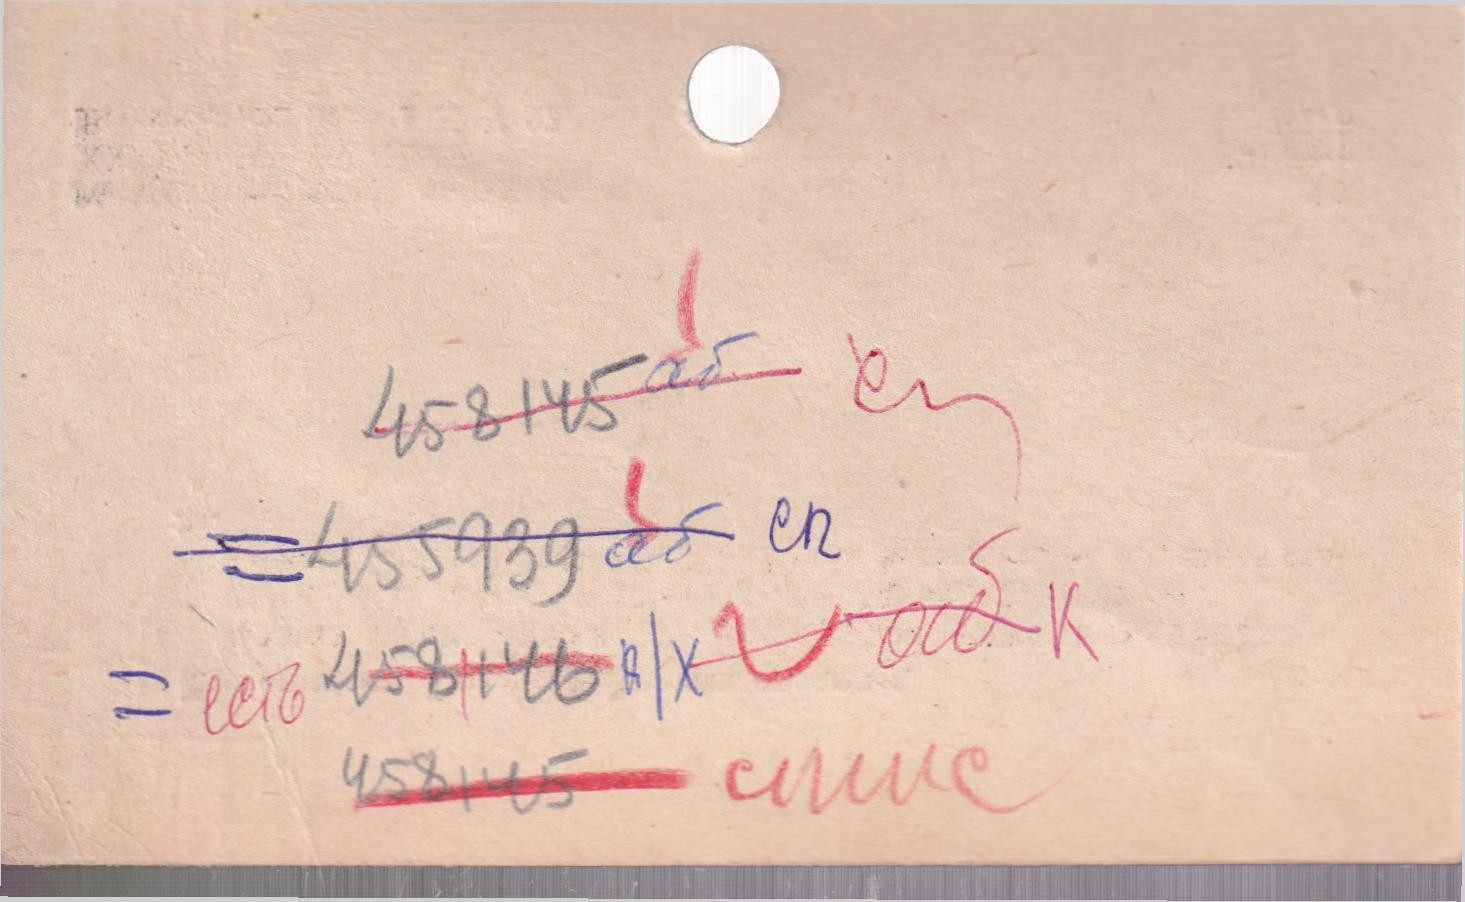 458145 аб сп
= 455939 аб сп
= есть 458146 к/х аб К
458145 спис